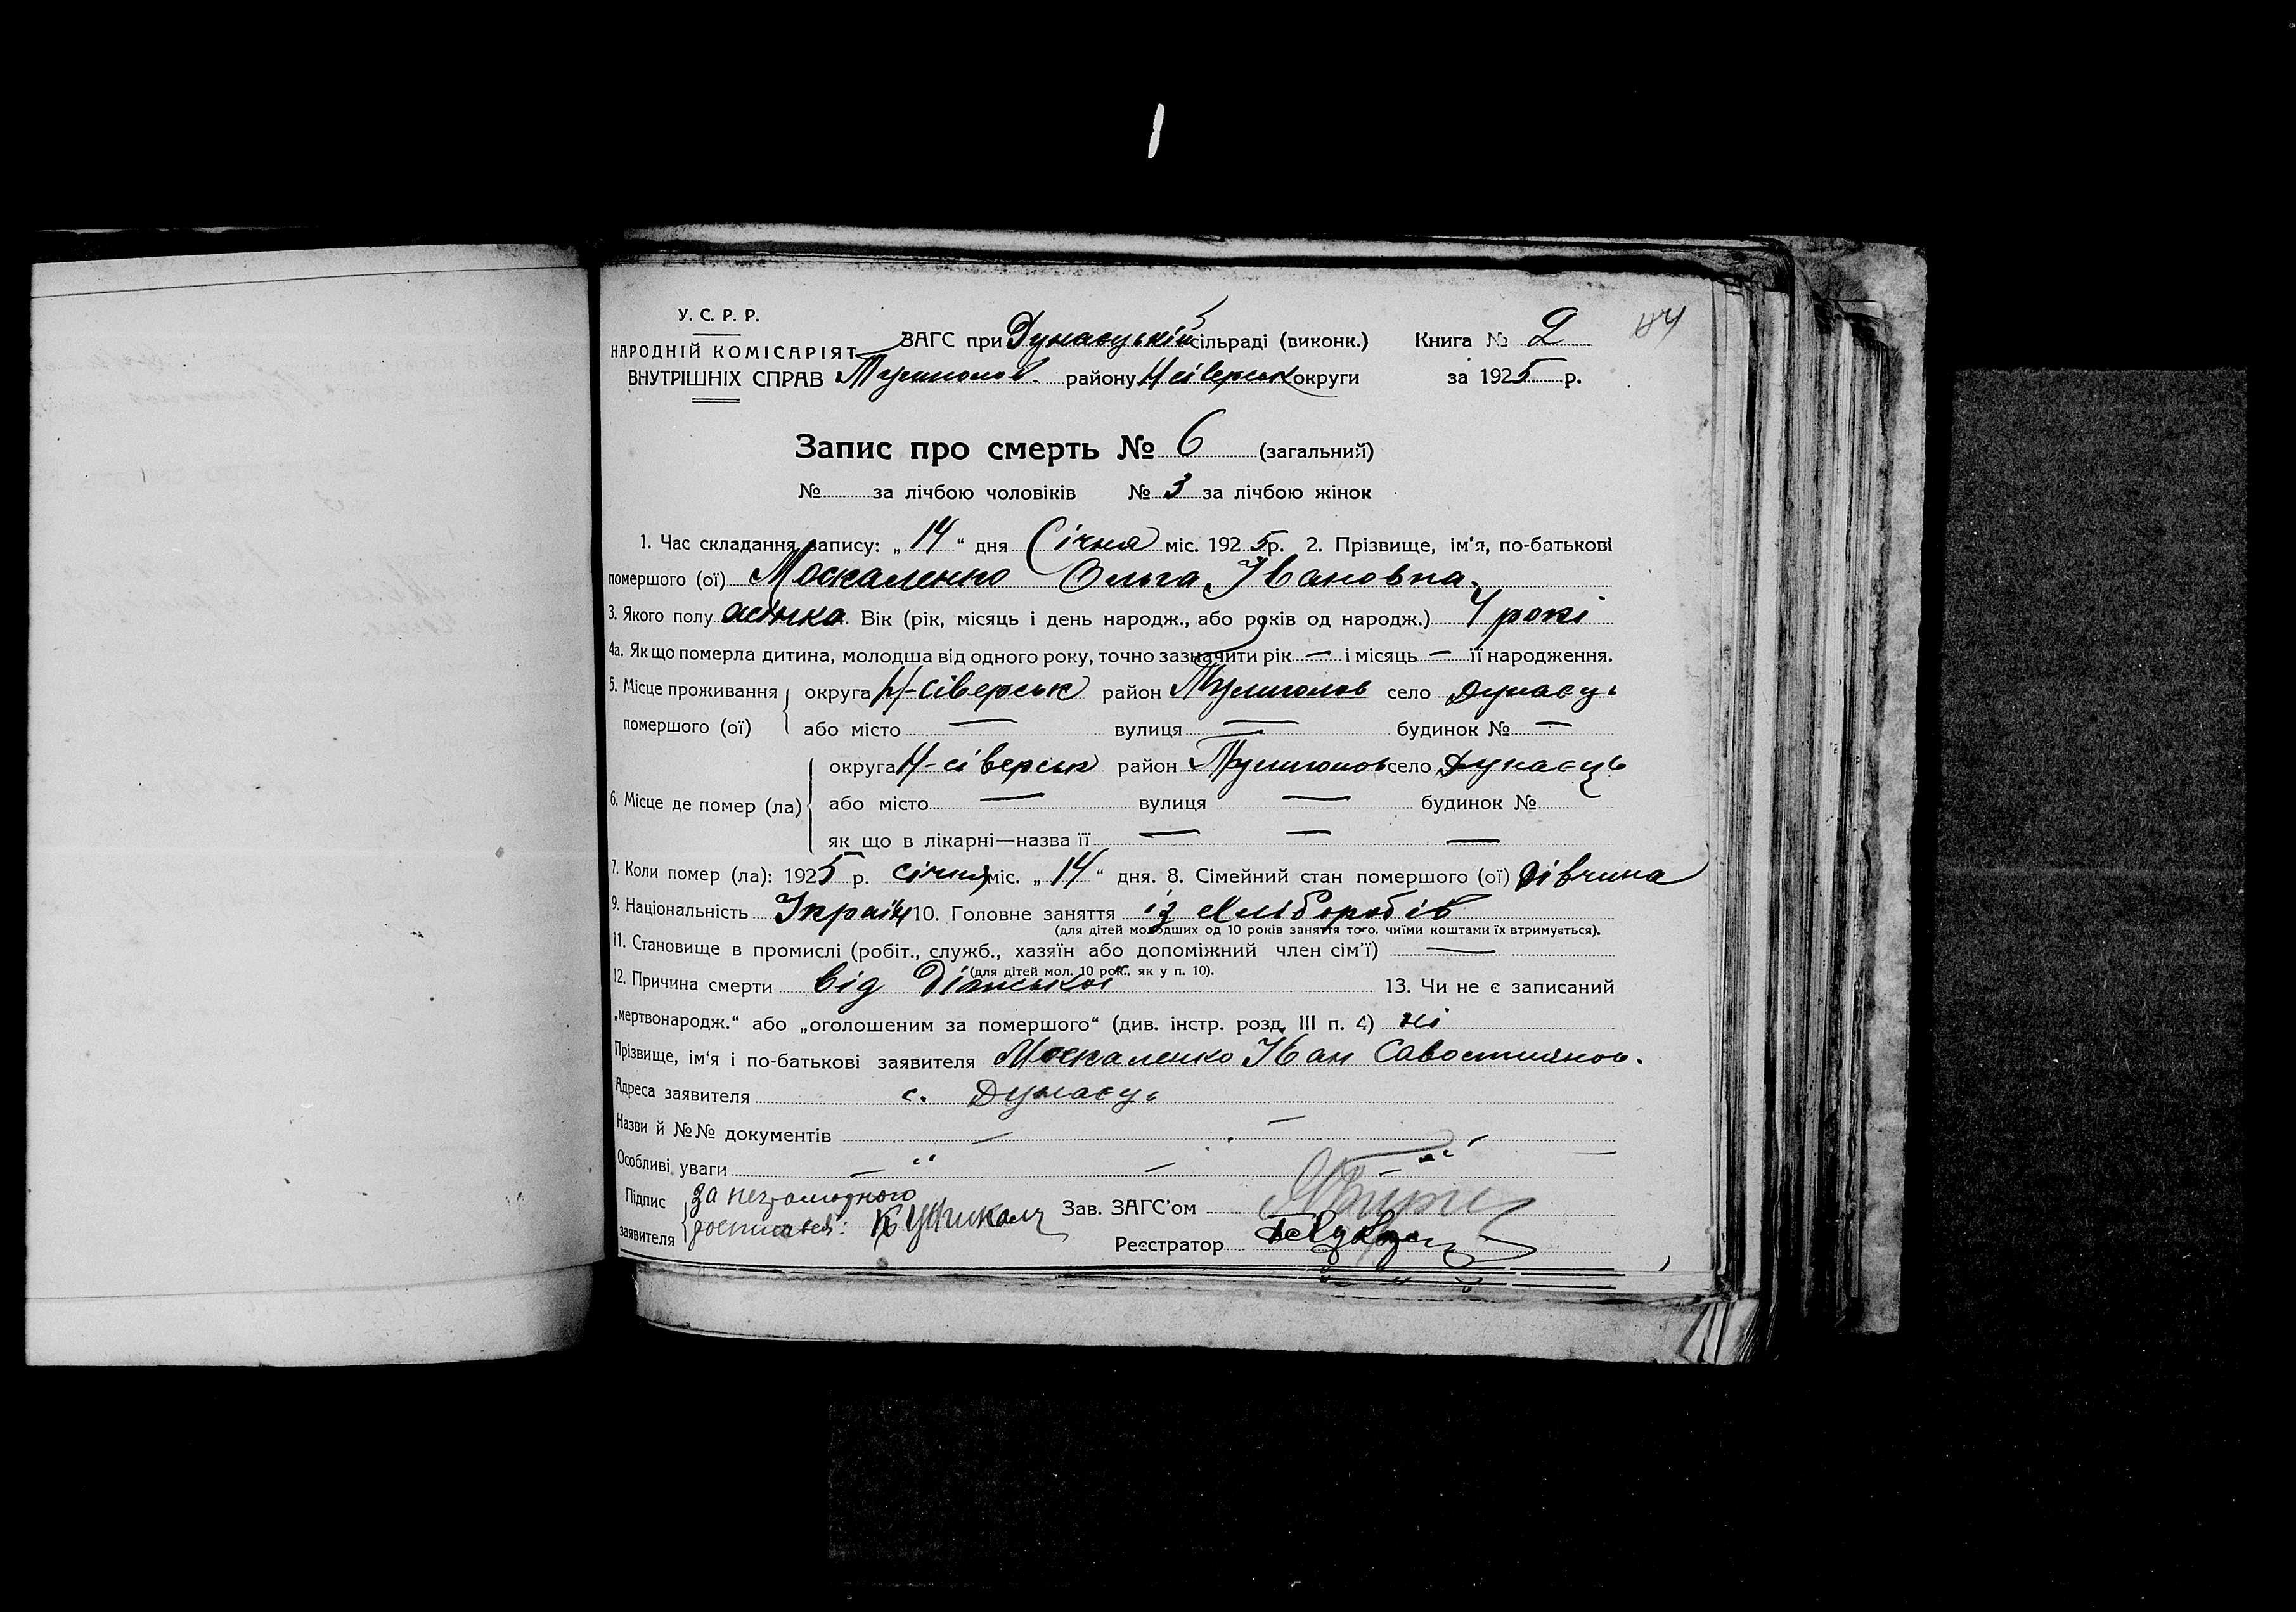 У. С. Р. Р.
НАРОДНІЙ КОМІСАРІЯТ
ВНУТРІШНІХ СПРАВ
ЗАГС при Дунаєцькій сільраді (виконк.) Книга № 2 84
Тулиголов. району Н сіверськ округи за 1925 р.
Запис про смерть № 6 (загальний)
№ за лічбою чоловіків № 3 за лічбою жінок
1. Час складання запису: „14“ дня Січня міс. 1925 р. 2. Прізвище, ім'я, по-батькові
помершого (ої) Москаленко Ольга Івановна.
3. Якого полу жінка Вік (рік, місяць і день народж., або років од народж.) 4 рокі
4а. Як що померла дитина, молодша від одного року, точно зазначити рік — і місяць — її народження.
5. Місце проживання помершого (ої) округа Н-сіверськ район Тулиголов село Дунаєць
або місто — вулиця — будинок № —
6. Місце де помер (ла) округа Н-сіверськ район Тулиголов село Дунаєць
або місто — вулиця — будинок №
як що в лікарні—назва її — — —
7. Коли помер (ла): 1925 р. січня міс. „14“ дня. 8. Сімейний стан помершого (ої) дівчина
9. Національність Україн 10. Головне заняття із хліборобів
(для дітей молодших од 10 років заняття того, чиїми коштами їх втримується).
11. Становище в промислі (робіт., служб., хазяїн або допоміжний член сім'ї) —
(для дітей мол. 10 рок., як у п. 10).
12. Причина смерти від 13. Чи не є записаний
„мертвонародж.“ або „оголошеним за помершого“ (див. інстр. розд. III п. 4) ні
Прізвище, ім'я і по-батькові заявителя Москаленко Іван Савостиянов.
Адреса заявителя с. Дунаєць
Назви й №№ документів — — —
Особливі уваги — " — — "
Підпис заявителя за незграмотного
росписався: Зав. ЗАГС'ом
Реєстратор